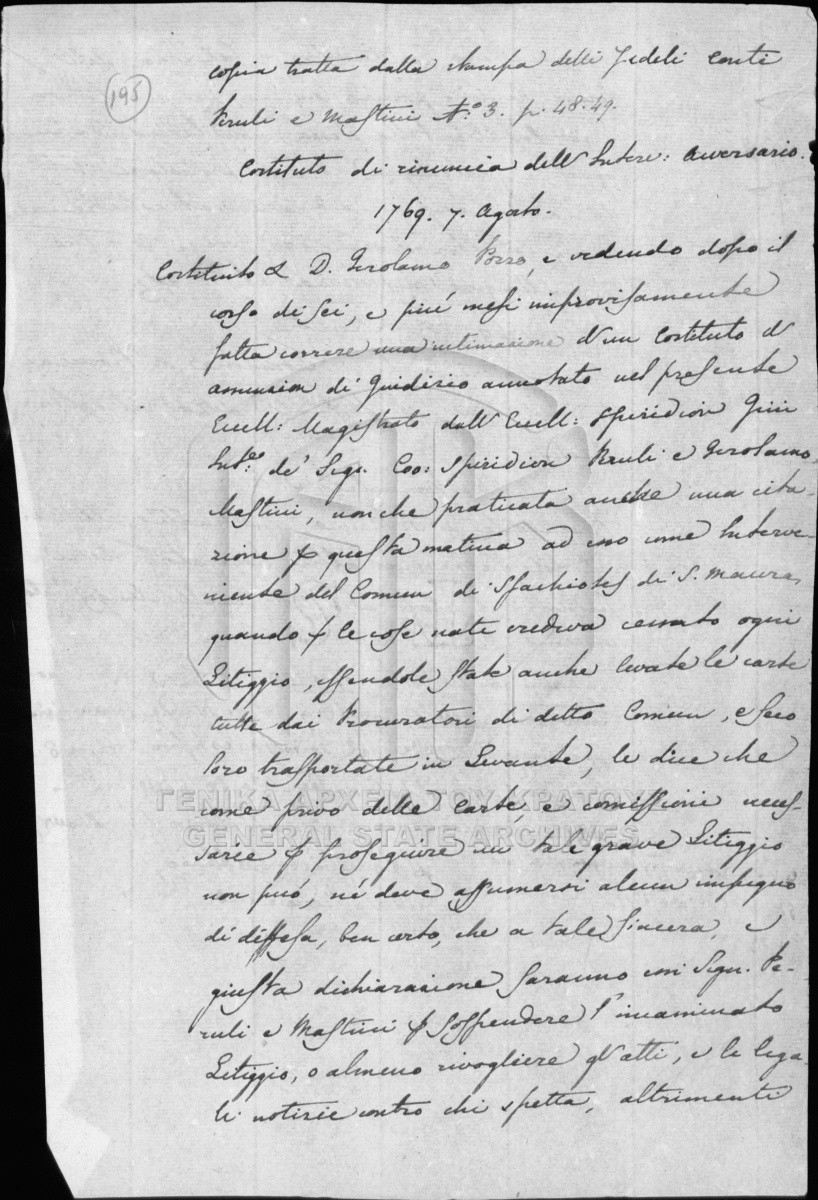 195
Copia tratta dalla stampa delli Fedeli Conti
Peruli e Mastini N.o 3. p. 48. 49.
Costituto di rinuncia dell' Interv: Aversario.
1769. 7. Agosto.
Costituito D. Gerolamo Pozzo, e vedendo dopo il
corso di sei, e più mesi improvisamente
fatta correre una intimazione d'un Costituto d'
amission di Giudizio annotato nel presente
Eccell: Magistrato dall' Eccell: Spiridion
de' Sigr. Coo: Spiridion Peruli e Gerolamo
Mastini, non che praticata anche una cita-
zione p questa matina ad esso come Interve-
niente del Comun di Sfachiotes di S. Maura,
quando p le cose nate credeva cessato ogni
Litiggio, essendole state anche levate le carte
tutte dai Procuratori di detto Comun, e seco
loro trasportate in Levante, le dice che
come privo delle Carte, e comissioni neces-
sarie p proseguire un tale grave Litiggio
non può, né deve assumersi alcun impegno
di diffesa, ben certo, che a tale sincera, e
giusta dichiarazione saranno essi Sign. Pe-
ruli e Mastini p sospendere l'incaminato
Litiggio, o almeno rivogliere gl'atti, e le lega-
li notizie contro chi spetta, altrimenti
ΓΕΝΙΚΑ ΑΡΧΕΙΑ ΤΟΥ ΚΡΑΤΟΥΣ
GENERAL STATE ARCHIVES